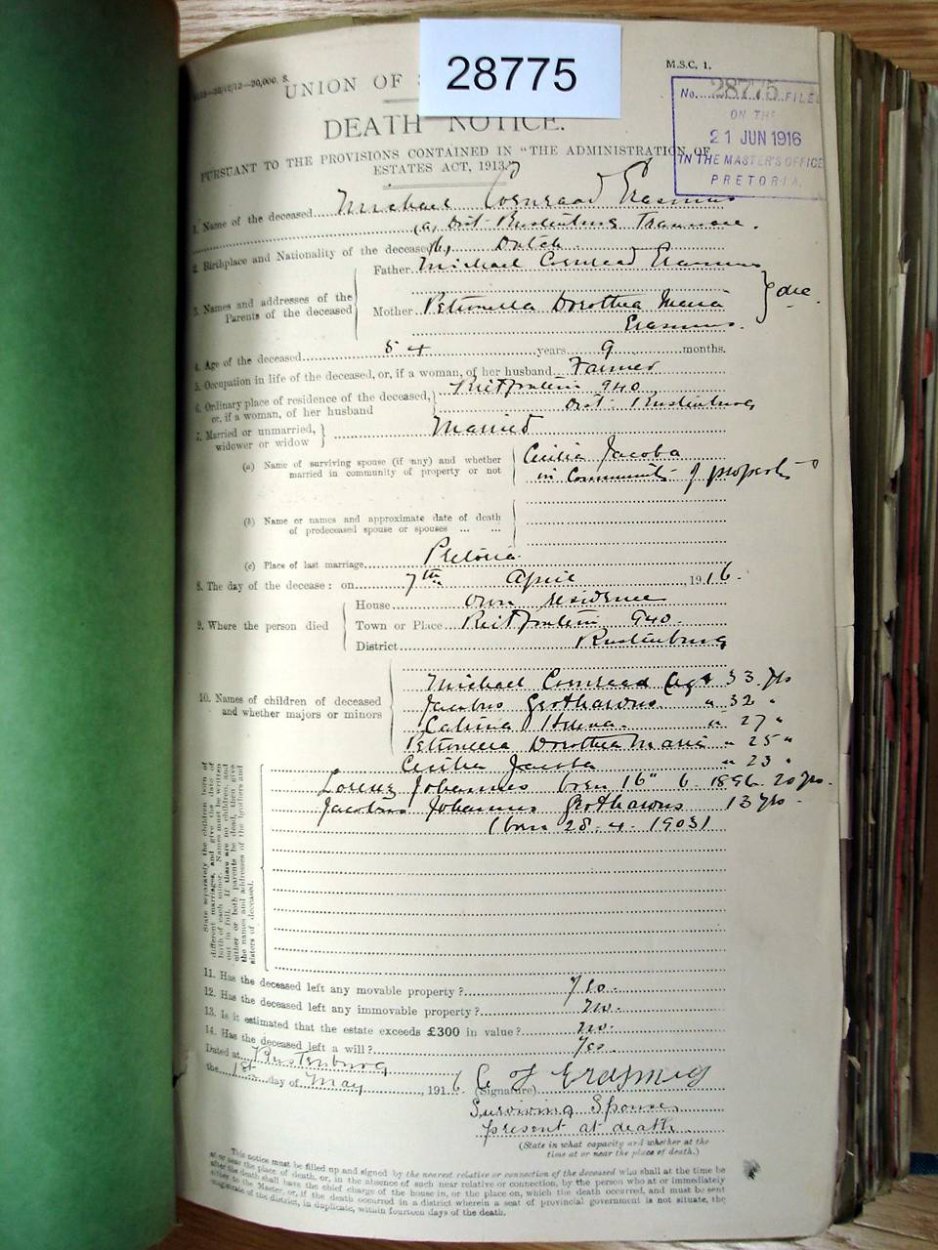 28775
M.S.C. 1.
UNION OF S
No. 28775 FILED
ON THE
21 JUN 1916
IN THE MASTER'S OFFICE
PRETORIA.
DEATH NOTICE.
PURSUANT TO THE PROVISIONS CONTAINED IN "THE ADMINISTRATION OF
ESTATES ACT, 1913."
1. Name of the deceased Michael Coenraad Erasmus
(a) Dist Rustenburg Transvaal.
2. Birthplace and Nationality of the deceased (b) Dutch
Father Michael Coenraad Erasmus
3. Names and addresses of the
Parents of the deceased
Mother Petronella Dorothea Maria
Erasmus.
dec.
4. Age of the deceased 54 years 9 months.
5. Occupation in life of the deceased, or, if a woman, of her husband Farmer
6. Ordinary place of residence of the deceased, Rietfontein 940
or, if a woman, of her husband Dist. Rustenburg
7. Married or unmarried, widower or widow Married
(a) Name of surviving spouse (if any) and whether Cecilia Jacoba
married in community of property or not in Community of property
(b) Name or names and approximate date of death
of predeceased spouse or spouses ... ...
(c) Place of last marriage Pretoria
8. The day of the decease: on 7th April 1916.
House Own residence
9. Where the person died Town or Place Rietfontein 940.
District Rustenburg
10. Names of children of deceased
and whether majors or minors
Michael Coenraad Age 33 yrs
Jacobus " 32 "
Catrina Helena " 27 "
Petronella Dorothea Maria " 25 "
Cecilia Jacoba " 23 "
Lorenz Johannes born 16" 6. 1896 20 yrs.
Jacobus Johannes 13 yrs.
(born 28.4.1903)
State separately the children born of
different marriages, and give the date of
birth of each minor. Names must be written
out in full. If there are no children, and
either or both parents be dead, then give
the names and addresses of the brothers and
sisters of deceased.
11. Has the deceased left any movable property? Yes.
12. Has the deceased left any immovable property? No.
13. Is it estimated that the estate exceeds £300 in value? No.
14. Has the deceased left a will? Yes
Dated at Rustenburg
the 1st day of May 1916 C J Erasmus
(Signature)
Surviving Spouse
present at death.
(State in what capacity and whether at the
time at or near the place of death.)
This notice must be filled up and signed by the nearest relative or connection of the deceased who shall at the time be
at or near the place of death, or, in the absence of such near relative or connection, by the person who at or immediately
after the death shall have the chief charge of the house in, or the place on, which the death occurred, and must be sent
either to the Master, or, if the death occurred in a district wherein a seat of provincial government is not situate, the
magistrate of the district, in duplicate, within fourteen days of the death.